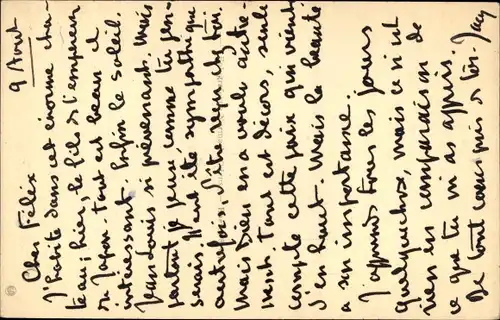 9 Aout
Cher Félix
J'habite dans cet énorme cha-
teau; hier, le fils de l'empereur
du Japon. tout est beau et
intéressant. Enfin le soleil.
Jean-Louis si prévenant. Mais
partout je pense comme tu pen-
serais. Il eut été sympathique
autrefois, d'être reçu chez toi.
Mais Dieu en a voulu autre-
ment. Tout est décors, seule
compte cette paix qui vient
d'en haut. Mais la beauté
a son importance.
J'apprends tous les jours
quelquechose, mais ce n'est
rien en comparaison de
ce que tu m'as appris.
De tout coeur suis à toi. Jacq